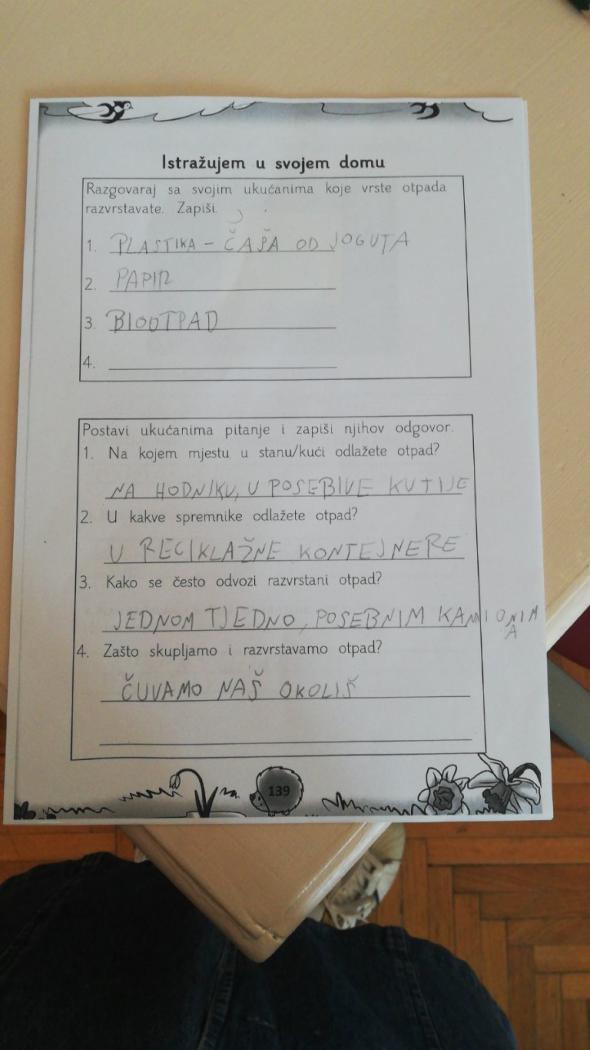 Istražujem u svojem domu
Razgovaraj sa svojim ukućanima koje vrste otpada
razvrstavate. Zapiši.
1. PLASTIKA - ČAŠA OD JOGUTA
2. PAPIR
3. BIOOTPAD
4.
Postavi ukućanima pitanje i zapiši njihov odgovor.
1. Na kojem mjestu u stanu/kući odlažete otpad?
NA HODNIKU, U POSEBIVE KUTIJE
2. U kakve spremnike odlažete otpad?
U RECIKLAŽNE KONTEJNERE
3. Kako se često odvozi razvrstani otpad?
JEDNOM TJEDNO, POSEBNIM KAMIONIM
A
4. Zašto skupljamo i razvrstavamo otpad?
ČUVAMO NAŠ OKOLIŠ
139